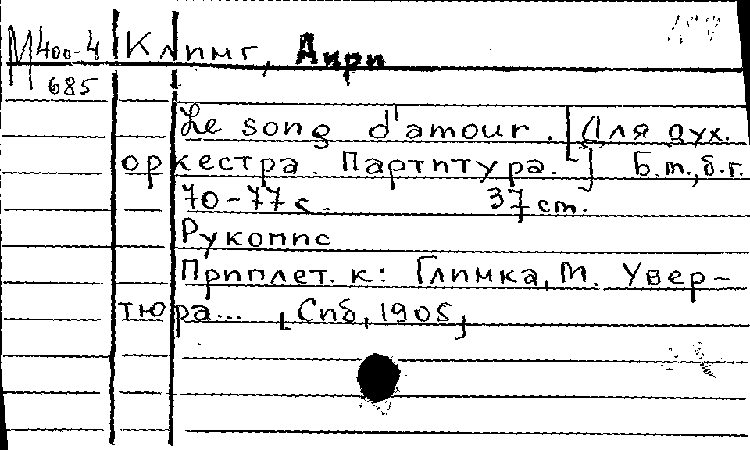 М400-4 Климг, Анри
685
Le song d'amour. [Для дух.
оркестра. Партитура.] Б.т., б.г.
70-77 с. 37 cm.
Рукопис
Приплет. к: Глимка, М. Увер-
тюра... [Спб, 1905]